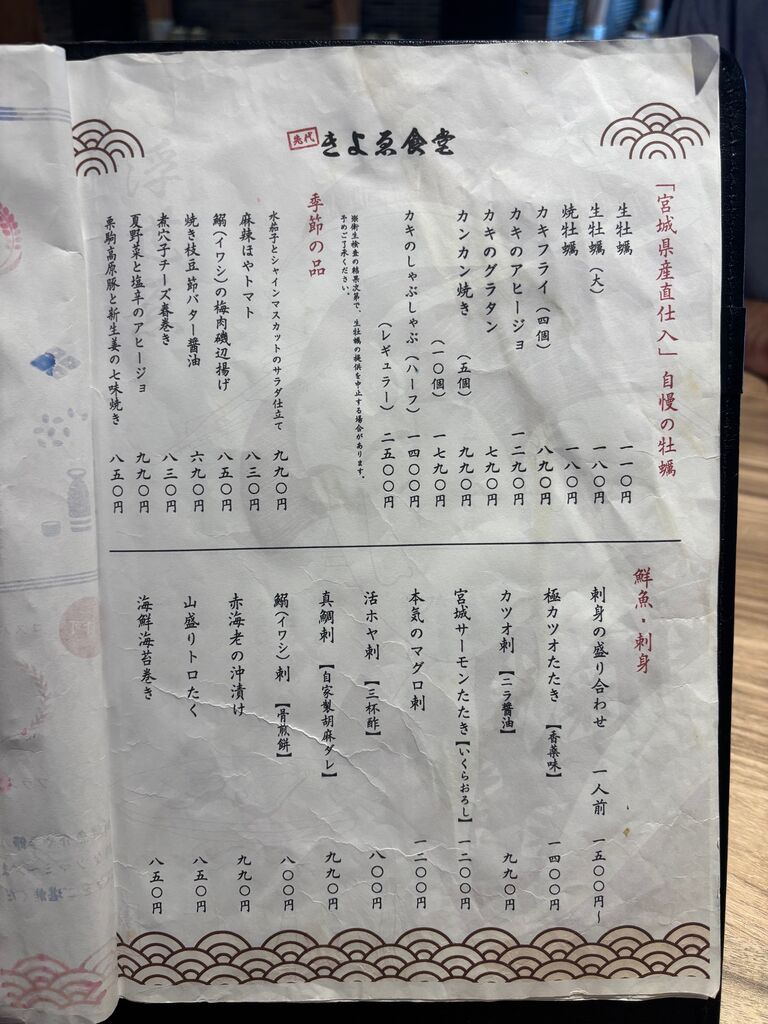 先代 きよゑ食堂
「宮城県産直仕入」自慢の牡蠣
生牡蠣 一一〇円
生牡蠣(大) 一八〇円
焼牡蠣 一八〇円
カキフライ(四個) 八九〇円
カキのアヒージョ 一二九〇円
カキのグラタン 七九〇円
カンカン焼き (五個) 九九〇円
(一〇個) 一七九〇円
カキのしゃぶしゃぶ(ハーフ) 一四〇〇円
(レギュラー) 二五〇〇円
※衛生検査の結果次第で、生牡蠣の提供を中止する場合があります。
予めご了承ください。
季節の品
水茄子とシャインマスカットのサラダ仕立て 九九〇円
麻辣ほやトマト 八三〇円
鰯(イワシ)の梅肉磯辺揚げ 八五〇円
焼き枝豆 節バター醤油 六九〇円
煮穴子チーズ春巻き 八三〇円
夏野菜と塩辛のアヒージョ 九九〇円
栗駒高原豚と新生姜の七味焼き 八五〇円
鮮魚・刺身
刺身の盛り合わせ 一人前 一五〇〇円〜
極カツオたたき【香薬味】 一四〇〇円
カツオ刺【ニラ醤油】 九九〇円
宮城サーモンたたき【いくらおろし】 一二〇〇円
本気のマグロ刺 一二〇〇円
活ホヤ刺【三杯酢】 八〇〇円
真鯛刺【自家製胡麻ダレ】 九九〇円
鰯(イワシ)刺【骨煎餅】 八〇〇円
赤海老の沖漬け 九九〇円
山盛りトロたく 八五〇円
海鮮海苔巻き 八五〇円